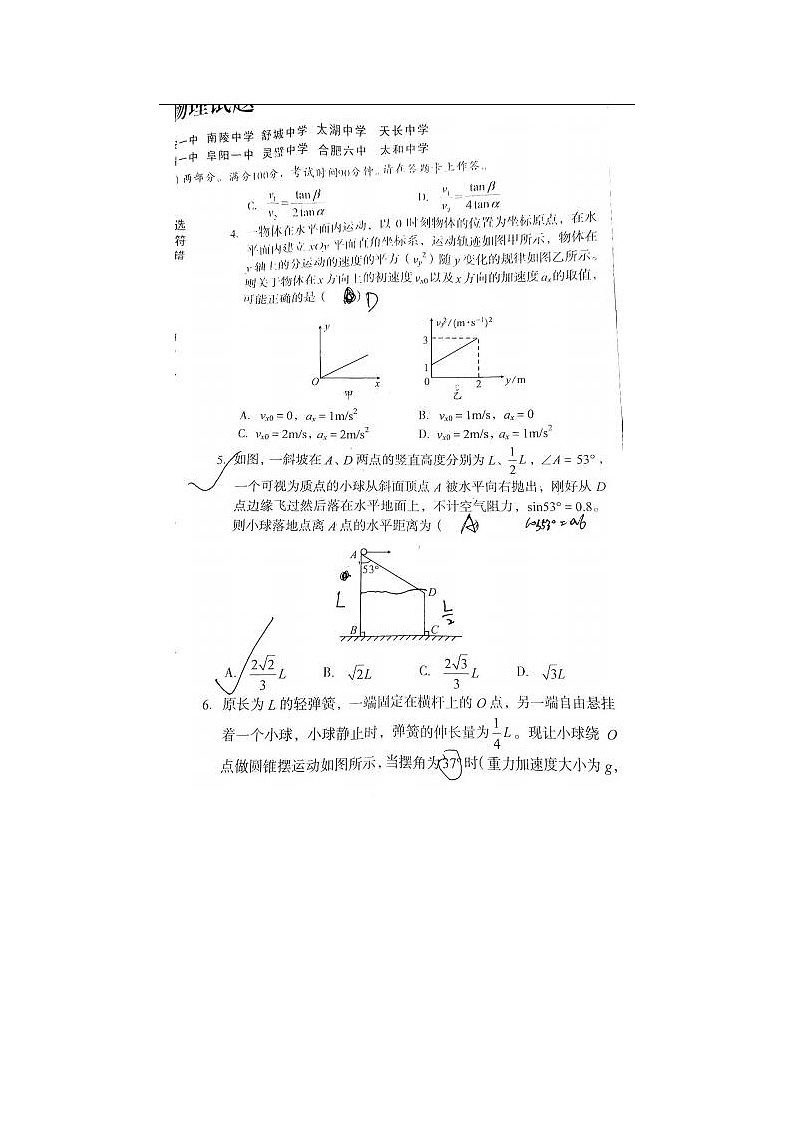 物理试题
一中 南陵中学 舒城中学 太湖中学 天长中学
一中 阜阳一中 灵璧中学 合肥六中 太和中学
) 两部分。满分100分，考试时间90分钟。请在答题卡上作答。
C. v₁/v₂ = tanβ/2tanα D. v₁/v₂ = tanβ/4tanα
选
符
错
4. 一物体在水平面内运动，以 0 时刻物体的位置为坐标原点，在水
平面内建立 xOy 平面直角坐标系，运动轨迹如图甲所示，物体在
y 轴上的分运动的速度的平方（vy²）随 y 变化的规律如图乙所示。
则关于物体在 x 方向上的初速度 vx0 以及 x 方向的加速度 ax 的取值，
可能正确的是（ D ）
y
O
x
甲
vy²/(m·s⁻¹)²
3
1
0
2
y/m
乙
A. vx0 = 0，ax = 1m/s² B. vx0 = 1m/s，ax = 0
C. vx0 = 2m/s，ax = 2m/s² D. vx0 = 2m/s，ax = 1m/s²
5. 如图，一斜坡在 A、D 两点的竖直高度分别为 L、1/2 L，∠A = 53°，
一个可视为质点的小球从斜面顶点 A 被水平向右抛出，刚好从 D
点边缘飞过然后落在水平地面上，不计空气阻力，sin53° = 0.8。
则小球落地点离 A 点的水平距离为（ A ） cos53°=0.6
A
53°
L
D
L/2
B
C
A. 2√2/3 L B. √2L C. 2√3/3 L D. √3L
6. 原长为 L 的轻弹簧，一端固定在横杆上的 O 点，另一端自由悬挂
着一个小球，小球静止时，弹簧的伸长量为 1/4 L。现让小球绕 O
点做圆锥摆运动如图所示，当摆角为 37° 时（重力加速度大小为 g，